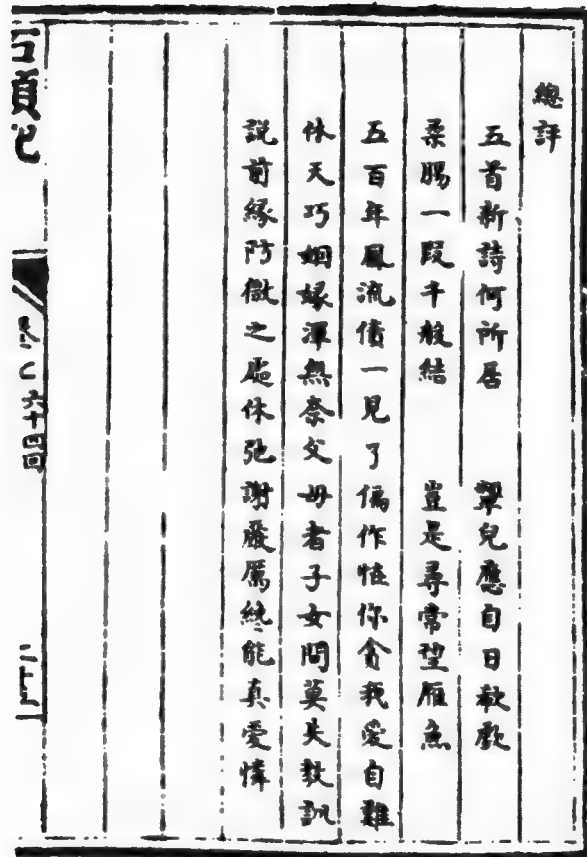 總評
五首新詩何所居 顰兒應自日欷歔
柔腸一段千般結 豈是尋常望雁魚
五百年風流債一見了偏作怪你貪我愛自難
休天巧姻緣渾無奈父母者子女間莫失教訓
說前緣防微之處休弛謝嚴厲終能真愛憐
石頭記
六十四回